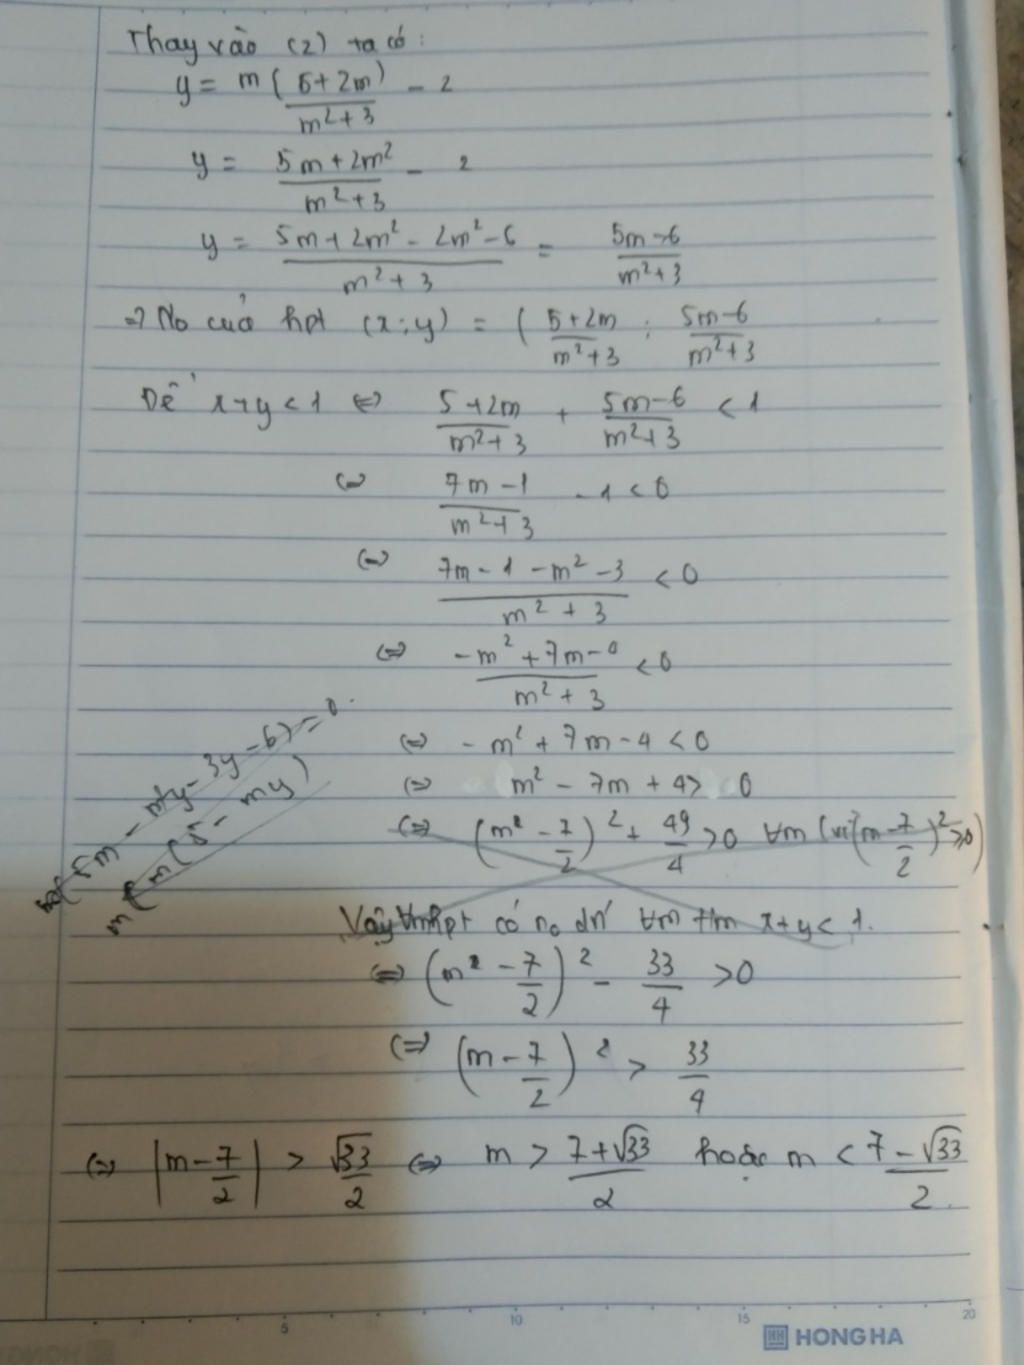 Thay vào (2) ta có:
y = m(5+2m)/(m²+3) - 2
y = (5m+2m²)/(m²+3) - 2
y = (5m+2m²-2m²-6)/(m²+3) = (5m-6)/(m²+3)
=> No của hpt (x;y) = ((5+2m)/(m²+3) ; (5m-6)/(m²+3)
Để x+y<1 <=> (5+2m)/(m²+3) + (5m-6)/(m²+3) < 1
<=> (7m-1)/(m²+3) - 1 < 0
<=> (7m-1-m²-3)/(m²+3) < 0
<=> (-m²+7m-0)/(m²+3) < 0
<=> -m²+7m-4 < 0
<=> m²-7m+4 > 0
<=> (m²-7/2)²+49/4 > 0 ∀m (vì (m-7/2)² ≥ 0)
(5m - m²y - 3y - 6) = 0
m(5 - my)
Vậy hpt có no dn ∀m t/m x+y<1.
<=> (m²-7/2)² - 33/4 > 0
<=> (m-7/2)² > 33/4
<=> |m-7/2| > √33/2 <=> m > (7+√33)/2 hoặc m < (7-√33)/2
5 10 15 20
HONG HA